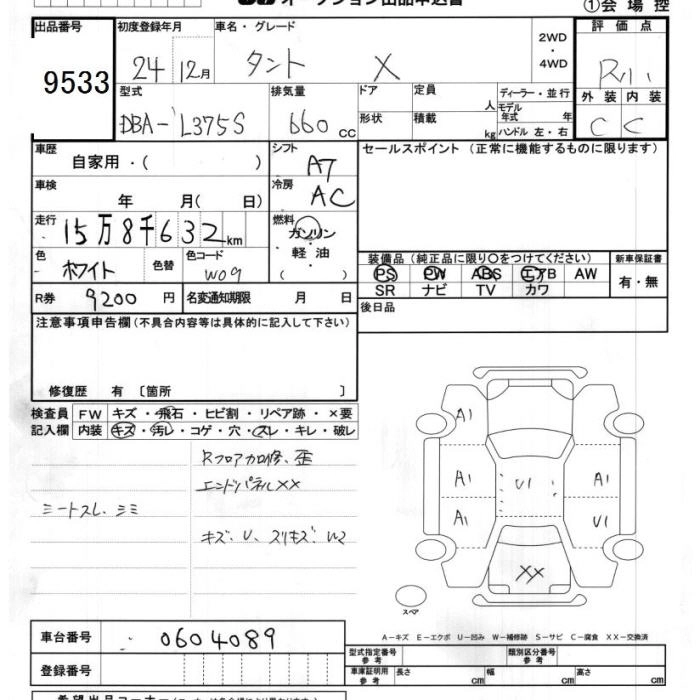 オークション出品申込書
①会場控
出品番号
9533
初度登録年月
24 12月
車名・グレード
タント X
2WD
・
4WD
評価点
外装 内装
C C
型式
DBA- L375S
排気量
660 cc
ドア
定員
人
形状
積載
kg
ディーラー・並行
モデル年式 年
ハンドル 左・右
車歴
自家用・( )
シフト
AT
車検
年 月( 日)
冷房
AC
走行
15万8千632km
燃料
ガソリン
・
軽油
( )
色
ホワイト
色替
色コード
W09
R券
9200 円
名変通知期限 月 日
セールスポイント(正常に機能するものに限ります)
装備品(純正品に限り〇をつけてください)
PS PW ABS エアB AW
SR ナビ TV カワ
新車保証書
有・無
後日品
注意事項申告欄(不具合内容等は具体的に記入して下さい)
修復歴 有 〔箇所 〕
検査員記入欄
FW キズ・飛石・ヒビ割・リペア跡・×要
内装 キズ・汚レ・コゲ・穴・スレ・キレ・破レ
Rフロア加修、歪
エンドパネルXX
シートスレ、シミ
キズ、U、スリキズ、W2
A1
A1
A1
U1
A1
U1
XX
スペア
A-キズ E-エクボ U-凹み W-補修跡 S-サビ C-腐食 XX-交換済
車台番号
0604089
登録番号
型式指定番号
参考
類別区分番号
参考
車庫証明用
参考
長さ cm
幅 cm
高さ cm